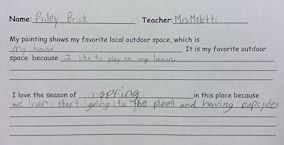 Name: Riley Brick Teacher: Mrs.
My painting shows my favorite local outdoor space, which is
my house. It is my favorite outdoor
space because I like to play in my lawn.
I love the season of spring in this place because
we can start going to the pool and having popcycles